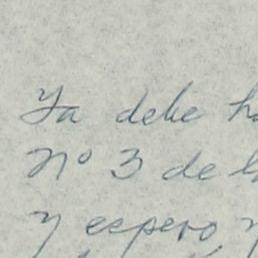 Ya debe
Nº 3 de
y espero